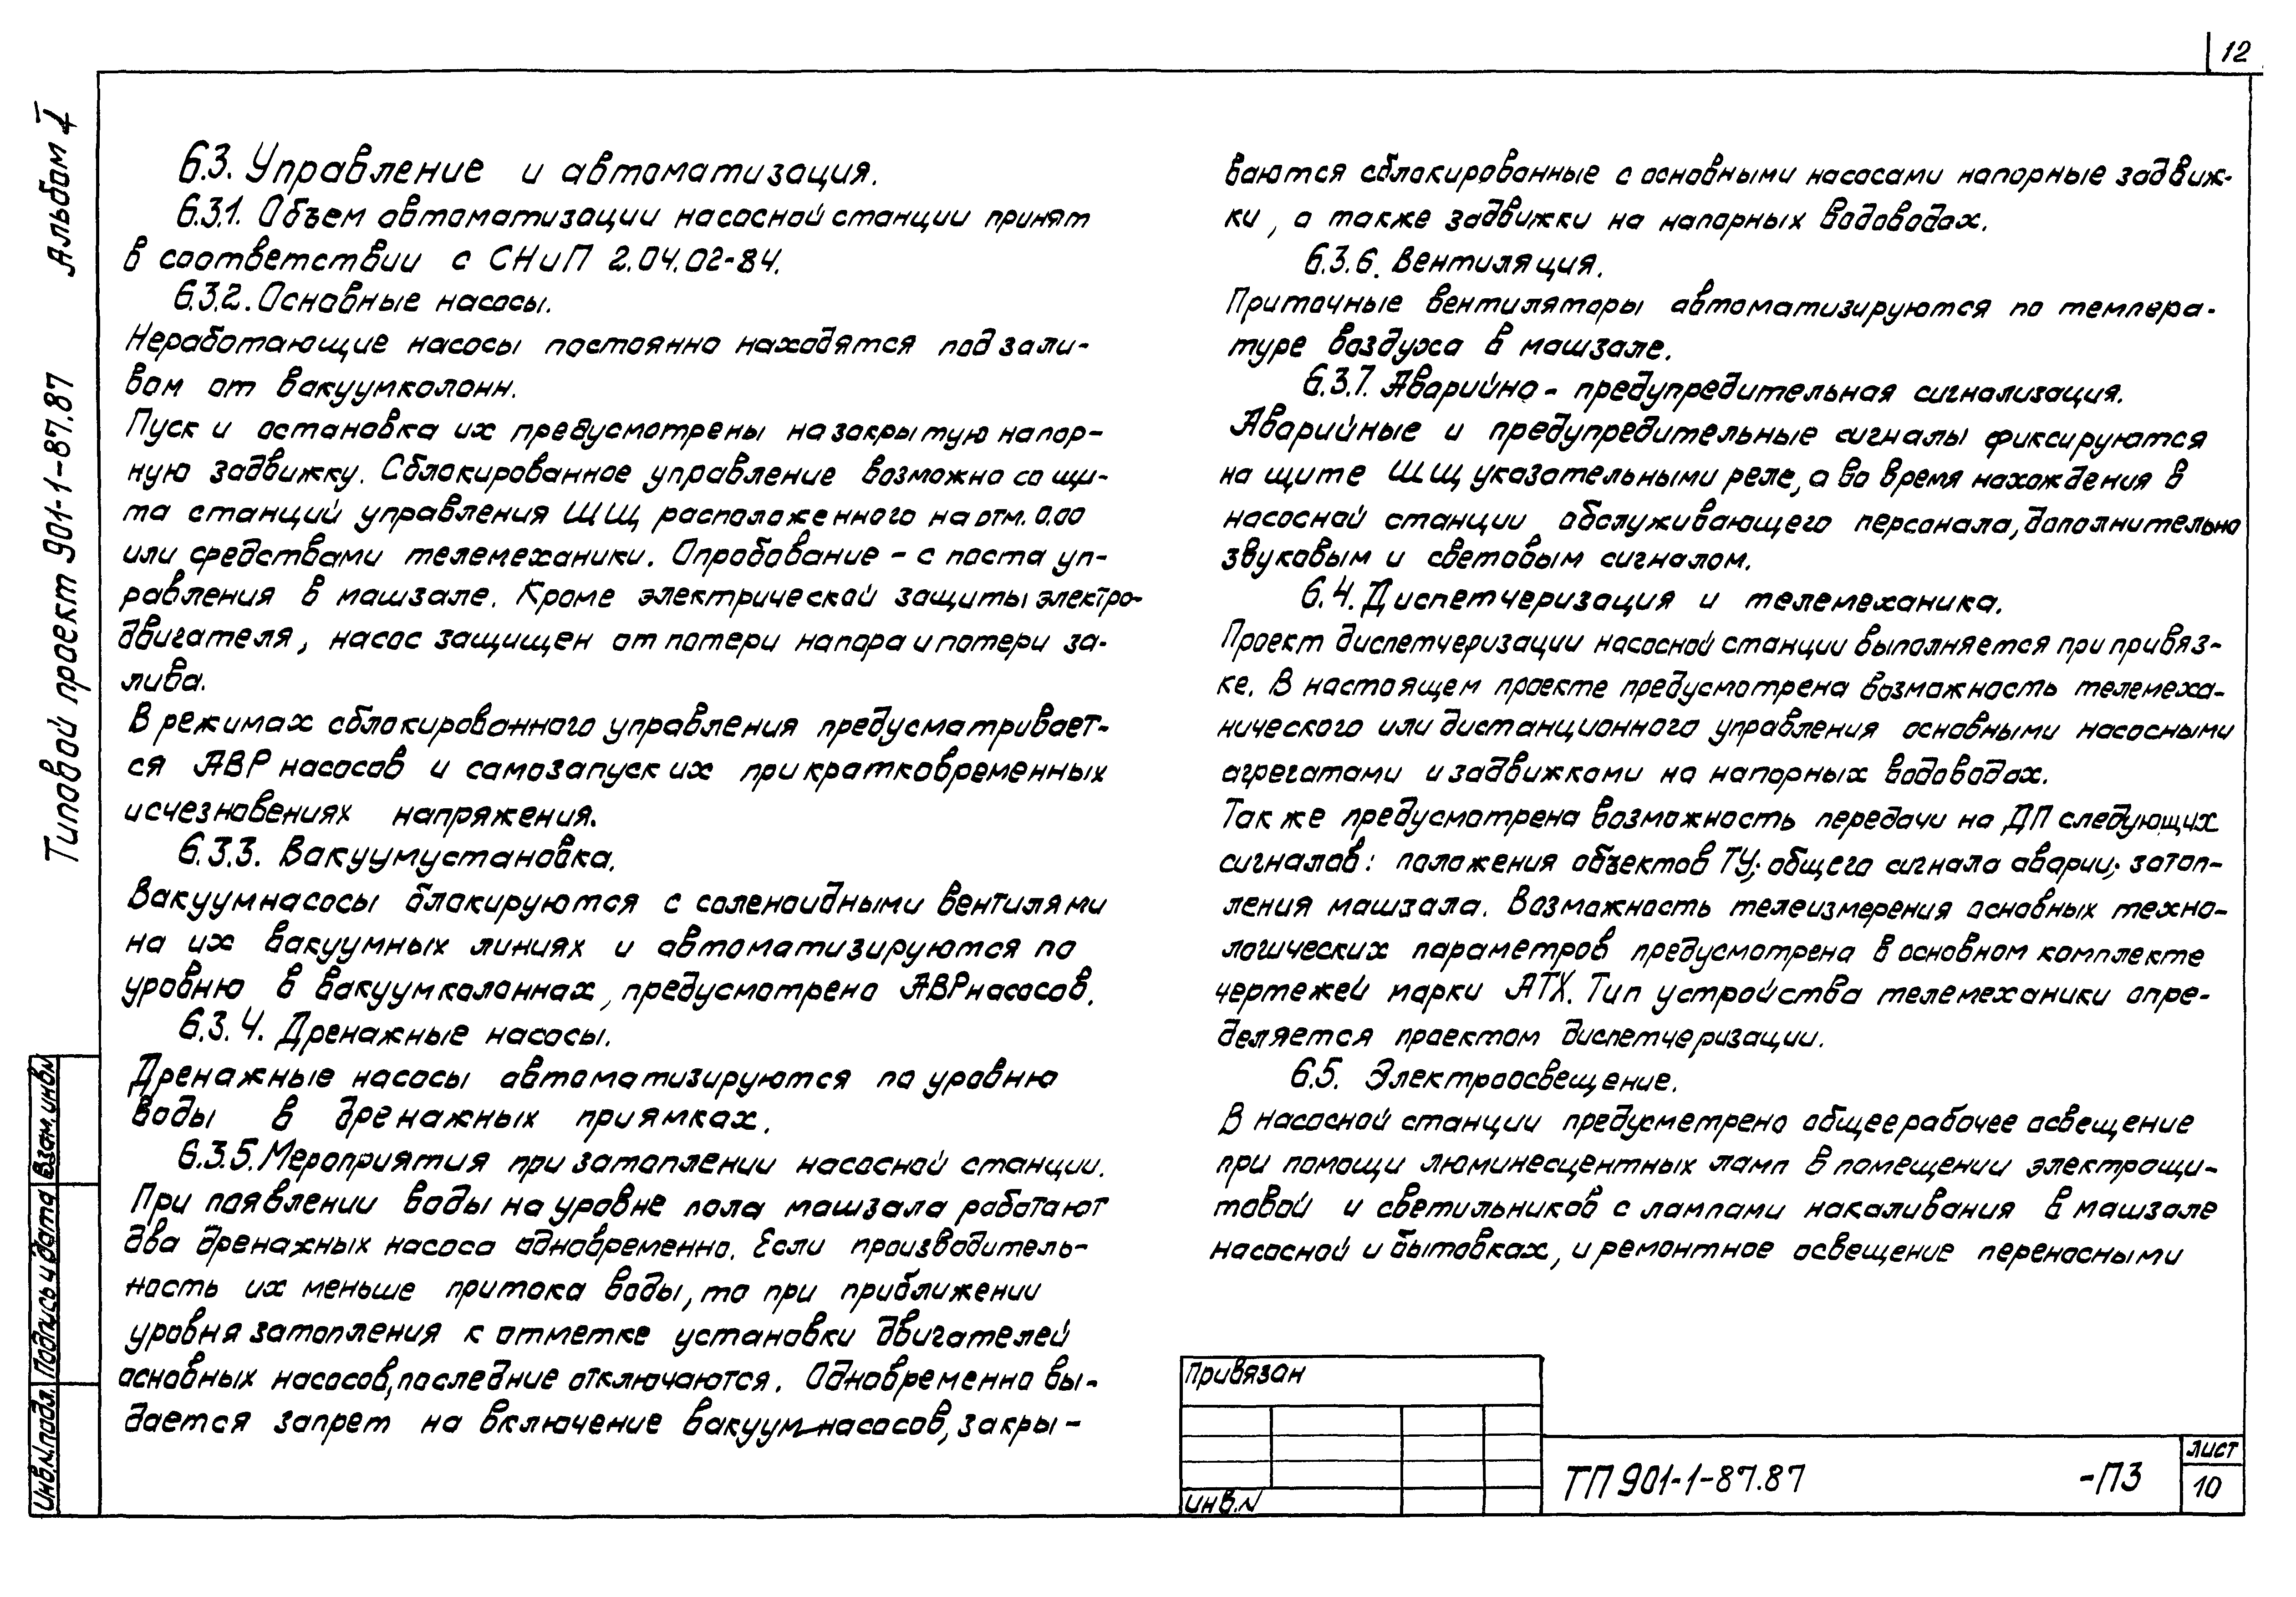 12
Альбом I
Типовой проект 901-1-87.87
6.3. Управление и автоматизация.
6.3.1. Объем автоматизации насосной станции принят
в соответствии с СНиП 2.04.02-84.
6.3.2. Основные насосы.
Неработающие насосы постоянно находятся под зали-
вом от вакуумколонн.
Пуск и остановка их предусмотрены на закрытую напор-
ную задвижку. Сблокированное управление возможно со щи-
та станций управления ШЩ, расположенного на отм. 0.00
или средствами телемеханики. Опробование - с поста уп-
равления в машзале. Кроме электрической защиты электро-
двигателя, насос защищен от потери напора и потери за-
лива.
В режимах сблокированного управления предусматривает-
ся АВР насосов и самозапуск их при кратковременных
исчезновениях напряжения.
6.3.3. Вакуумустановка.
Вакуумнасосы блокируются с соленоидными вентилями
на их вакуумных линиях и автоматизируются по
уровню в вакуумколоннах, предусмотрено АВР насосов.
6.3.4. Дренажные насосы.
Дренажные насосы автоматизируются по уровню
воды в дренажных приямках.
6.3.5. Мероприятия при затоплении насосной станции.
При появлении воды на уровне пола машзала работают
два дренажных насоса одновременно. Если производитель-
ность их меньше притока воды, то при приближении
уровня затопления к отметке установки двигателей
основных насосов, последние отключаются. Одновременно вы-
дается запрет на включение вакуум насосов, закры-
ваются сблокированные с основными насосами напорные задвиж-
ки, а также задвижки на напорных водоводах.
6.3.6. Вентиляция.
Приточные вентиляторы автоматизируются по темпера-
туре воздуха в машзале.
6.3.7. Аварийно - предупредительная сигнализация.
Аварийные и предупредительные сигналы фиксируются
на щите ШЩ указательными реле, а во время нахождения в
насосной станции обслуживающего персонала, дополнительно
звуковым и световым сигналом.
6.4. Диспетчеризация и телемеханика.
Проект диспетчеризации насосной станции выполняется при привяз-
ке. В настоящем проекте предусмотрена возможность телемеха-
нического или дистанционного управления основными насосными
агрегатами и задвижками на напорных водоводах.
Так же предусмотрена возможность передачи на ДП следующих
сигналов: положения объектов ТУ; общего сигнала аварии; затоп-
ления машзала. Возможность телеизмерения основных техно-
логических параметров предусмотрена в основном комплекте
чертежей марки АТХ. Тип устройства телемеханики опре-
деляется проектом диспетчеризации.
6.5. Электроосвещение.
В насосной станции предусметрено общее рабочее освещение
при помощи люминесцентных ламп в помещении электрощи-
товой и светильников с лампами накаливания в машзале
насосной и бытовках, и ремонтное освещение переносными
Привязан
инв.N
ТП 901-1-87.87 -ПЗ
лист
10
Инв.N подл.
Подпись и дата
Взам.инвN